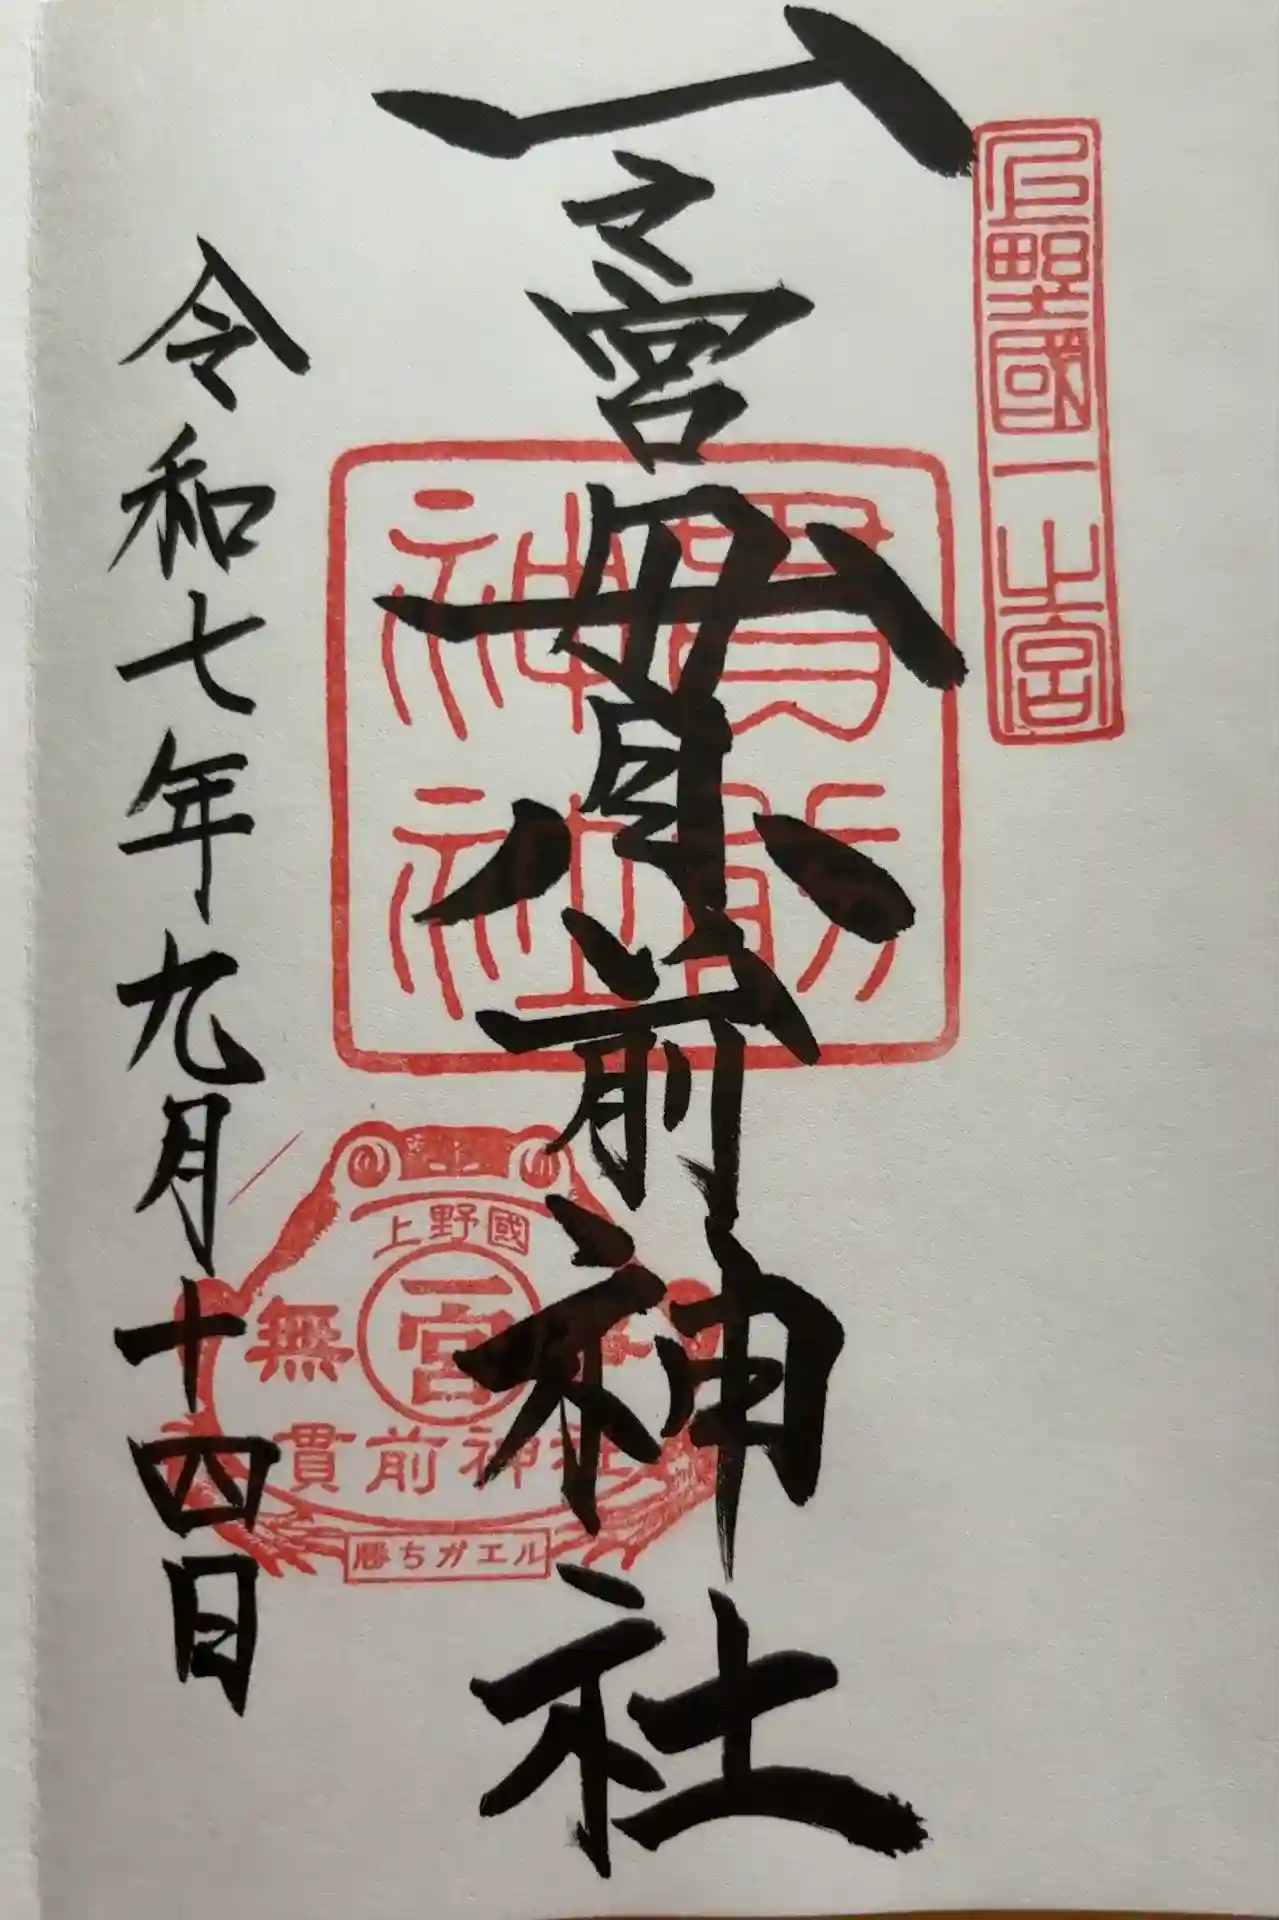 上野國一之宮
一之宮貫前神社
貫前神社
上野國
無 一宮
貫前神社
勝ちガエル
令和七年九月十四日